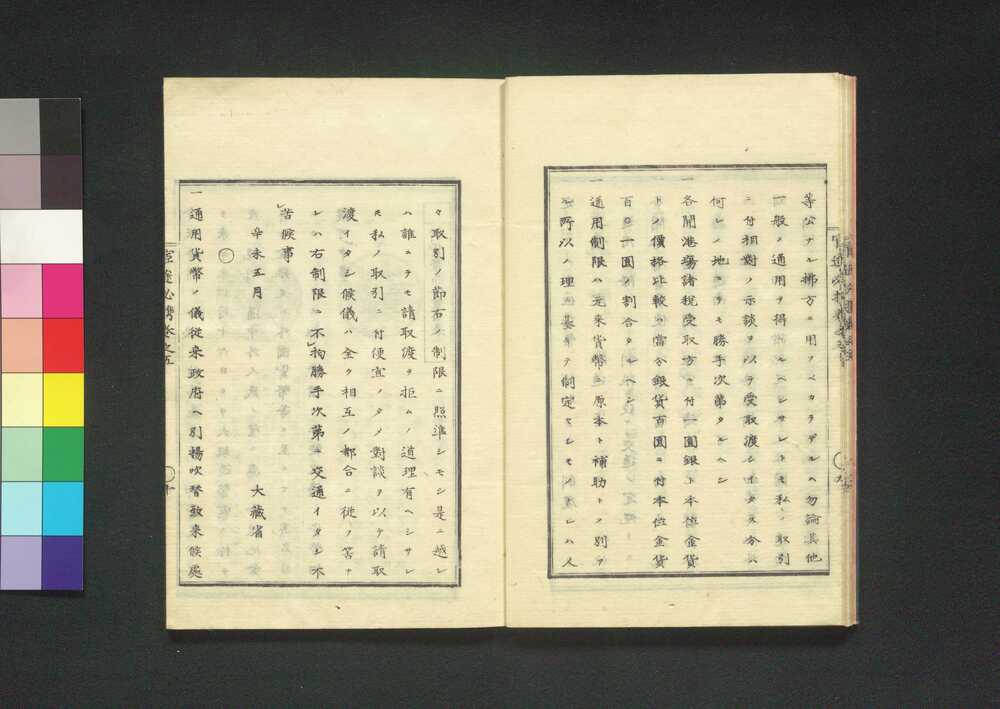 等公ナル拂方ニ用フベカラザルハ勿論其他
一般ノ通用ヲ得サルベシサレトモ私ノ取引
ニ付相對ノ示談ヲ以テ受取渡シイタス分ハ
何レノ地ニテモ勝手次第タルヘシ
一各開港場諸税受取方ニ付一圓銀ト本位金貨
トノ價格比較ハ當分銀貨百圓ニ付本位金貨
百〇一圓ノ割合タルヘシ
一通用制限ハ元来貨幣ニ原本ト補助トノ別ヲ
ル所以ノ理ニ基キテ制定セシモノナレハ人
々取引ノ節右ノ制限ニ照準シモシ是ニ越レ
ハ誰ニテモ請取渡ヲ拒ムノ道理有ヘシサレ
モ私ノ取引ニ付便宜ノタメ對談ヲ以テ請取
渡イタシ候儀ハ全ク相互ノ都合ニ従フ筈ナ
レハ右制限ニ不拘勝手次第ニ交通イタシ不
苦候事
辛未五月 大藏省
一通用貨幣ノ儀従来政府ヘ別楊吹替致来候處